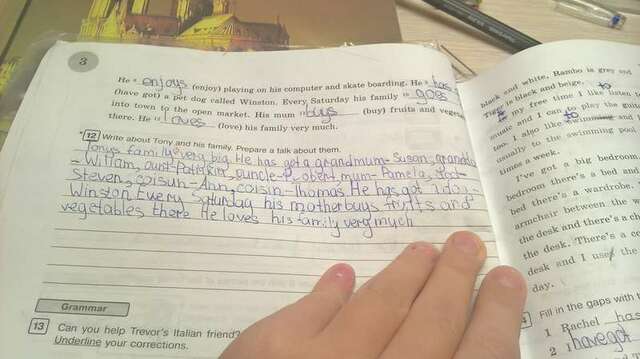 3
He ⁸ enjoys (enjoy) playing on his computer and skate boarding. He ⁹ has
(have got) a pet dog called Winston. Every Saturday his family ¹⁰ goes
into town to the open market. His mum buys (buy) fruits and vege
there. He loves (love) his family very much.
12 Write about Tony and his family. Prepare a talk about them.
Tonys family very big. He has got a grandmum-Susan, grandda
- William, aunt- uncle- mum-Pamela,
Steven, coisun-Ann, coisin-Thomas. He has got 1 dog-
Winston. Every Saturday his mother buys fruits and
vegetables there. He loves his family very much
Grammar
13 Can you help Trevor's Italian friend?
Underline your corrections.
black and white, Rambo is grey and
is black and beige. to
my free time I like listen
music and I can to play the guita
too. I also like swimming and
usually to the swimming pool
times a week.
I've got a big bedroom
bedroom there's a bed and
bed there's a wardrobe.
armchair between the w
the desk and there's a ch
the desk. There's a co
desk and I use the
day.
Fill in the gaps with
1 Rachel has
2 I have got